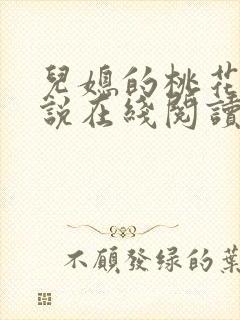 兒媳的桃花
說在綫閱讀
不願發綠的葉